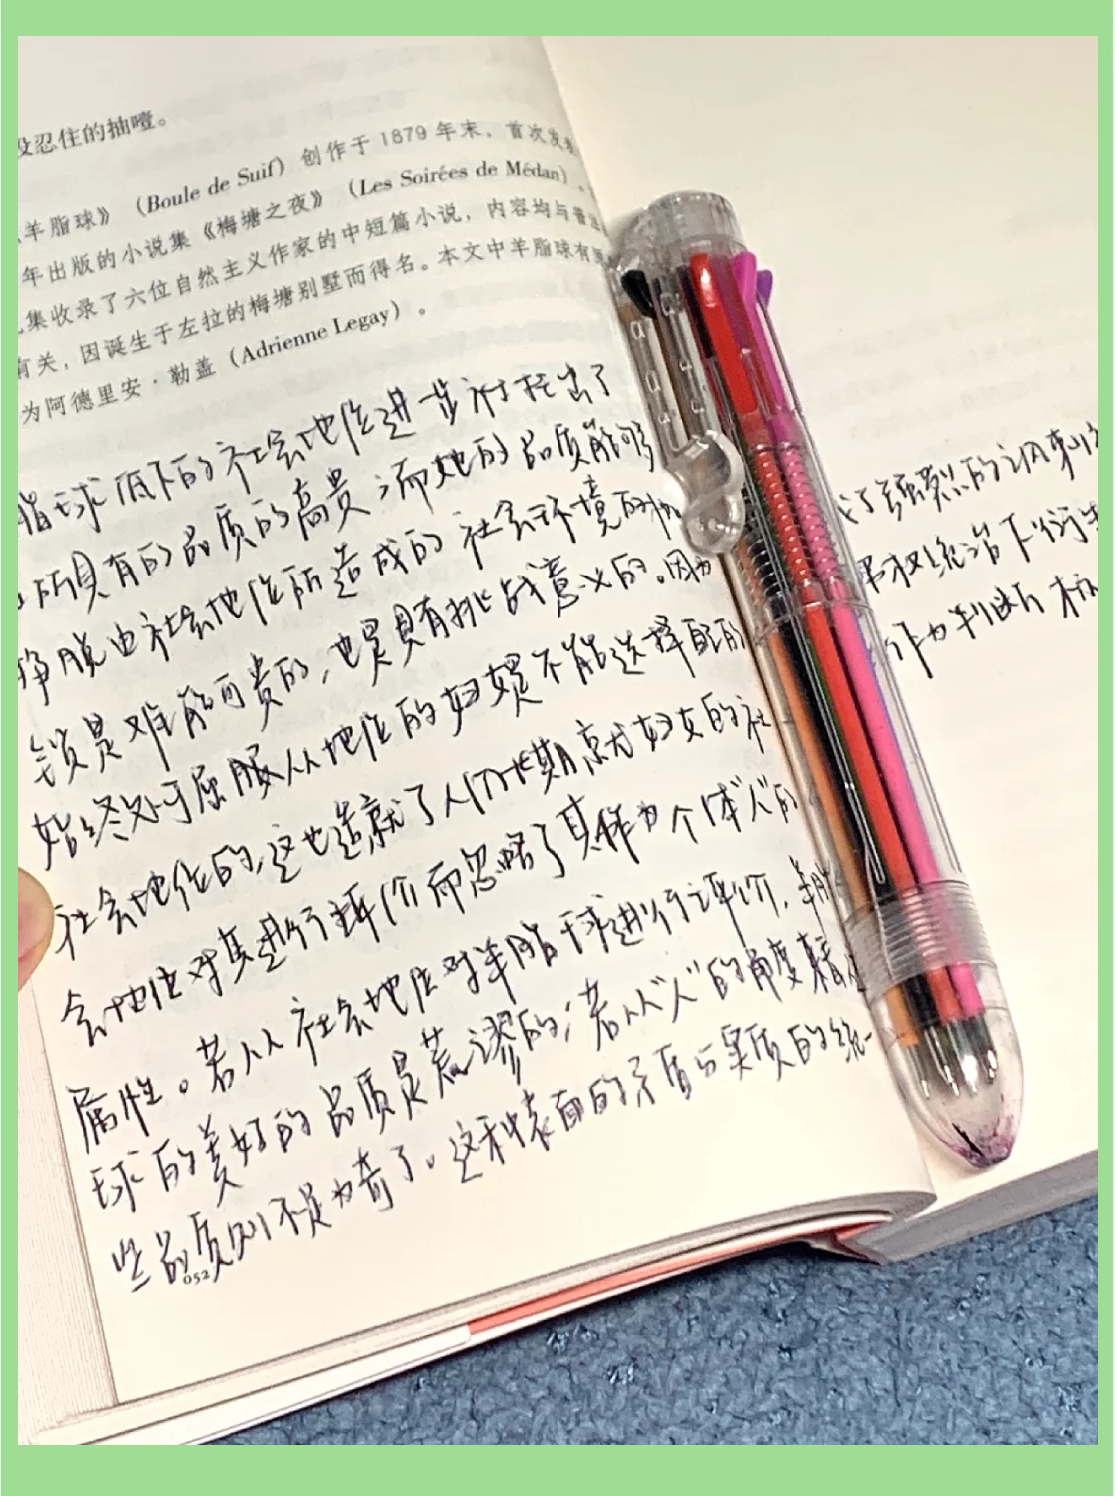 没忍住的抽噎。
羊脂球》（Boule de Suif）创作于 1879 年末，首次发表
年出版的小说集《梅塘之夜》（Les Soirées de Médan）。
集收录了六位自然主义作家的中短篇小说，内容均与普法
有关，因诞生于左拉的梅塘别墅而得名。本文中羊脂球有原
为阿德里安·勒盖（Adrienne Legay）。
脂球低下的社会地位进一步衬托出了
所具有的品质的高贵；而她的品质能够
挣脱由社会地位所造成的社会环境的枷
锁是难能可贵的，也是具有挑战意义的。因为
始终处于屈服从地位的妇女是不能选择自己的
社会地位的，这也造就了人们长期就妇女的社
会地位对其进行评价而忽略了其作为个体"人"的
属性。若从社会地位对羊脂球进行评价，羊脂
球的美好的品质是荒谬的；若从"人"的角度看待
些品质则不足为奇了。这种表面的矛盾与实质的统一
了强烈的讽刺
男权统治下衍生
作为判断标
052